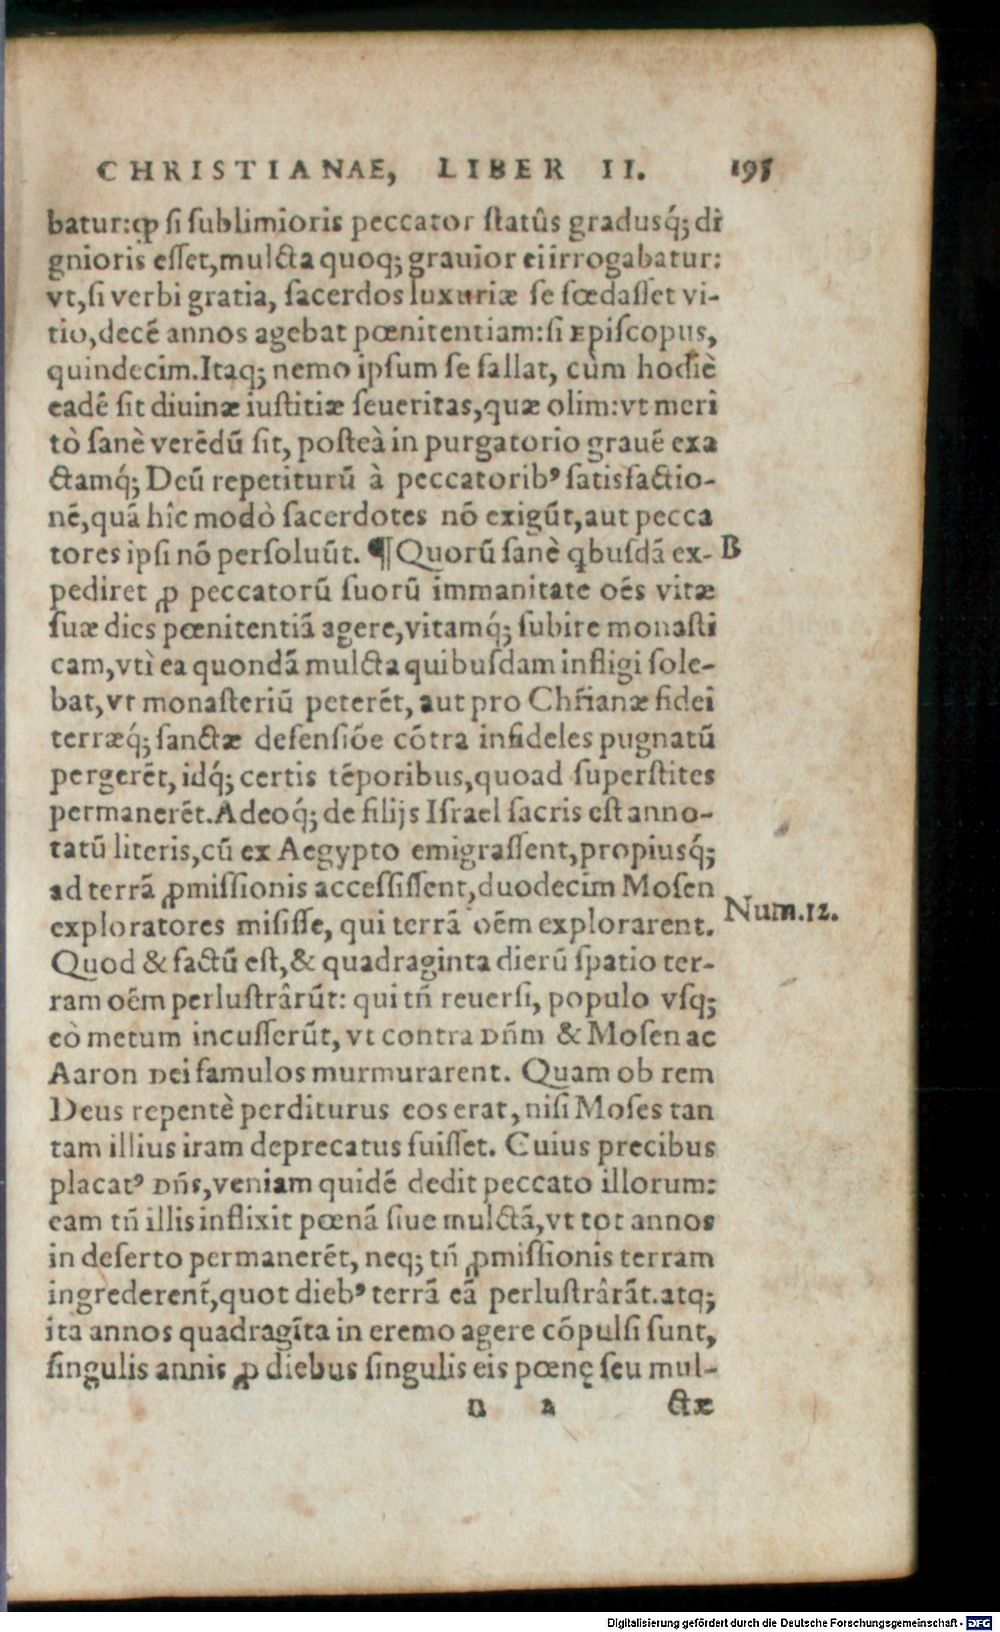 CHRISTIANAE, LIBER II. 195
batur:ꝙ si sublimioris peccator statûs gradusq́; di
gnioris esset,mulcta quoq; grauior ei irrogabatur:
vt,si verbi gratia, sacerdos luxuriæ se fœdasset vi-
tio,decẽ annos agebat pœnitentiam:si Episcopus,
quindecim.Itaq; nemo ipsum se fallat, cùm hodiè
eadẽ sit diuinæ iustitiæ seueritas,quæ olim:vt meri
tò sanè verẽdũ sit, posteà in purgatorio grauẽ exa
ctamq́; Deũ repetiturũ à peccatorib⁹ satisfactio-
nẽ,quã hîc modò sacerdotes nõ exigũt,aut pecca
tores ipsi nõ persoluũt. ¶Quorũ sanè qbusdã ex- B
pediret ꝓ peccatorũ suorũ immanitate oẽs vitæ
suæ dies pœnitentiã agere,vitamq́; subire monasti
cam,vtì ea quondã mulcta quibusdam infligi sole-
bat,vt monasteriũ peterẽt, aut pro Chr̃ianæ fidei
terræq́; sanctæ defensiõe cõtra infideles pugnatũ
pergerẽt,idq́; certis tẽporibus,quoad superstites
permanerẽt.Adeoq́; de filijs Israel sacris est anno-
tatũ literis,cũ ex Aegypto emigrassent,propiusq́;
ad terrã ꝓmissionis accessissent,duodecim Mosen
exploratores misisse, qui terrã oẽm explorarent. Num.12.
Quod & factũ est,& quadraginta dierũ spatio ter-
ram oẽm perlustrârũt: qui tñ reuersi, populo vsq;
eò metum incusserũt, vt contra Dñm & Mosen ac
Aaron Dei famulos murmurarent. Quam ob rem
Deus repentè perditurus eos erat,nisi Moses tan
tam illius iram deprecatus fuisset. Cuius precibus
placat⁹ Dñs,veniam quidẽ dedit peccato illorum:
eam tñ illis inflixit pœnã siue mulctã,vt tot annos
in deserto permanerẽt, neq; tñ ꝓmissionis terram
ingrederent̃,quot dieb⁹ terrã eã perlustrârãt.atq;
ita annos quadragĩta in eremo agere cõpulsi sunt,
singulis annis ꝓ diebus singulis eis pœnę seu mul-
n 2 ctæ
Digitalisierung gefördert durch die Deutsche Forschungsgemeinschaft - DFG